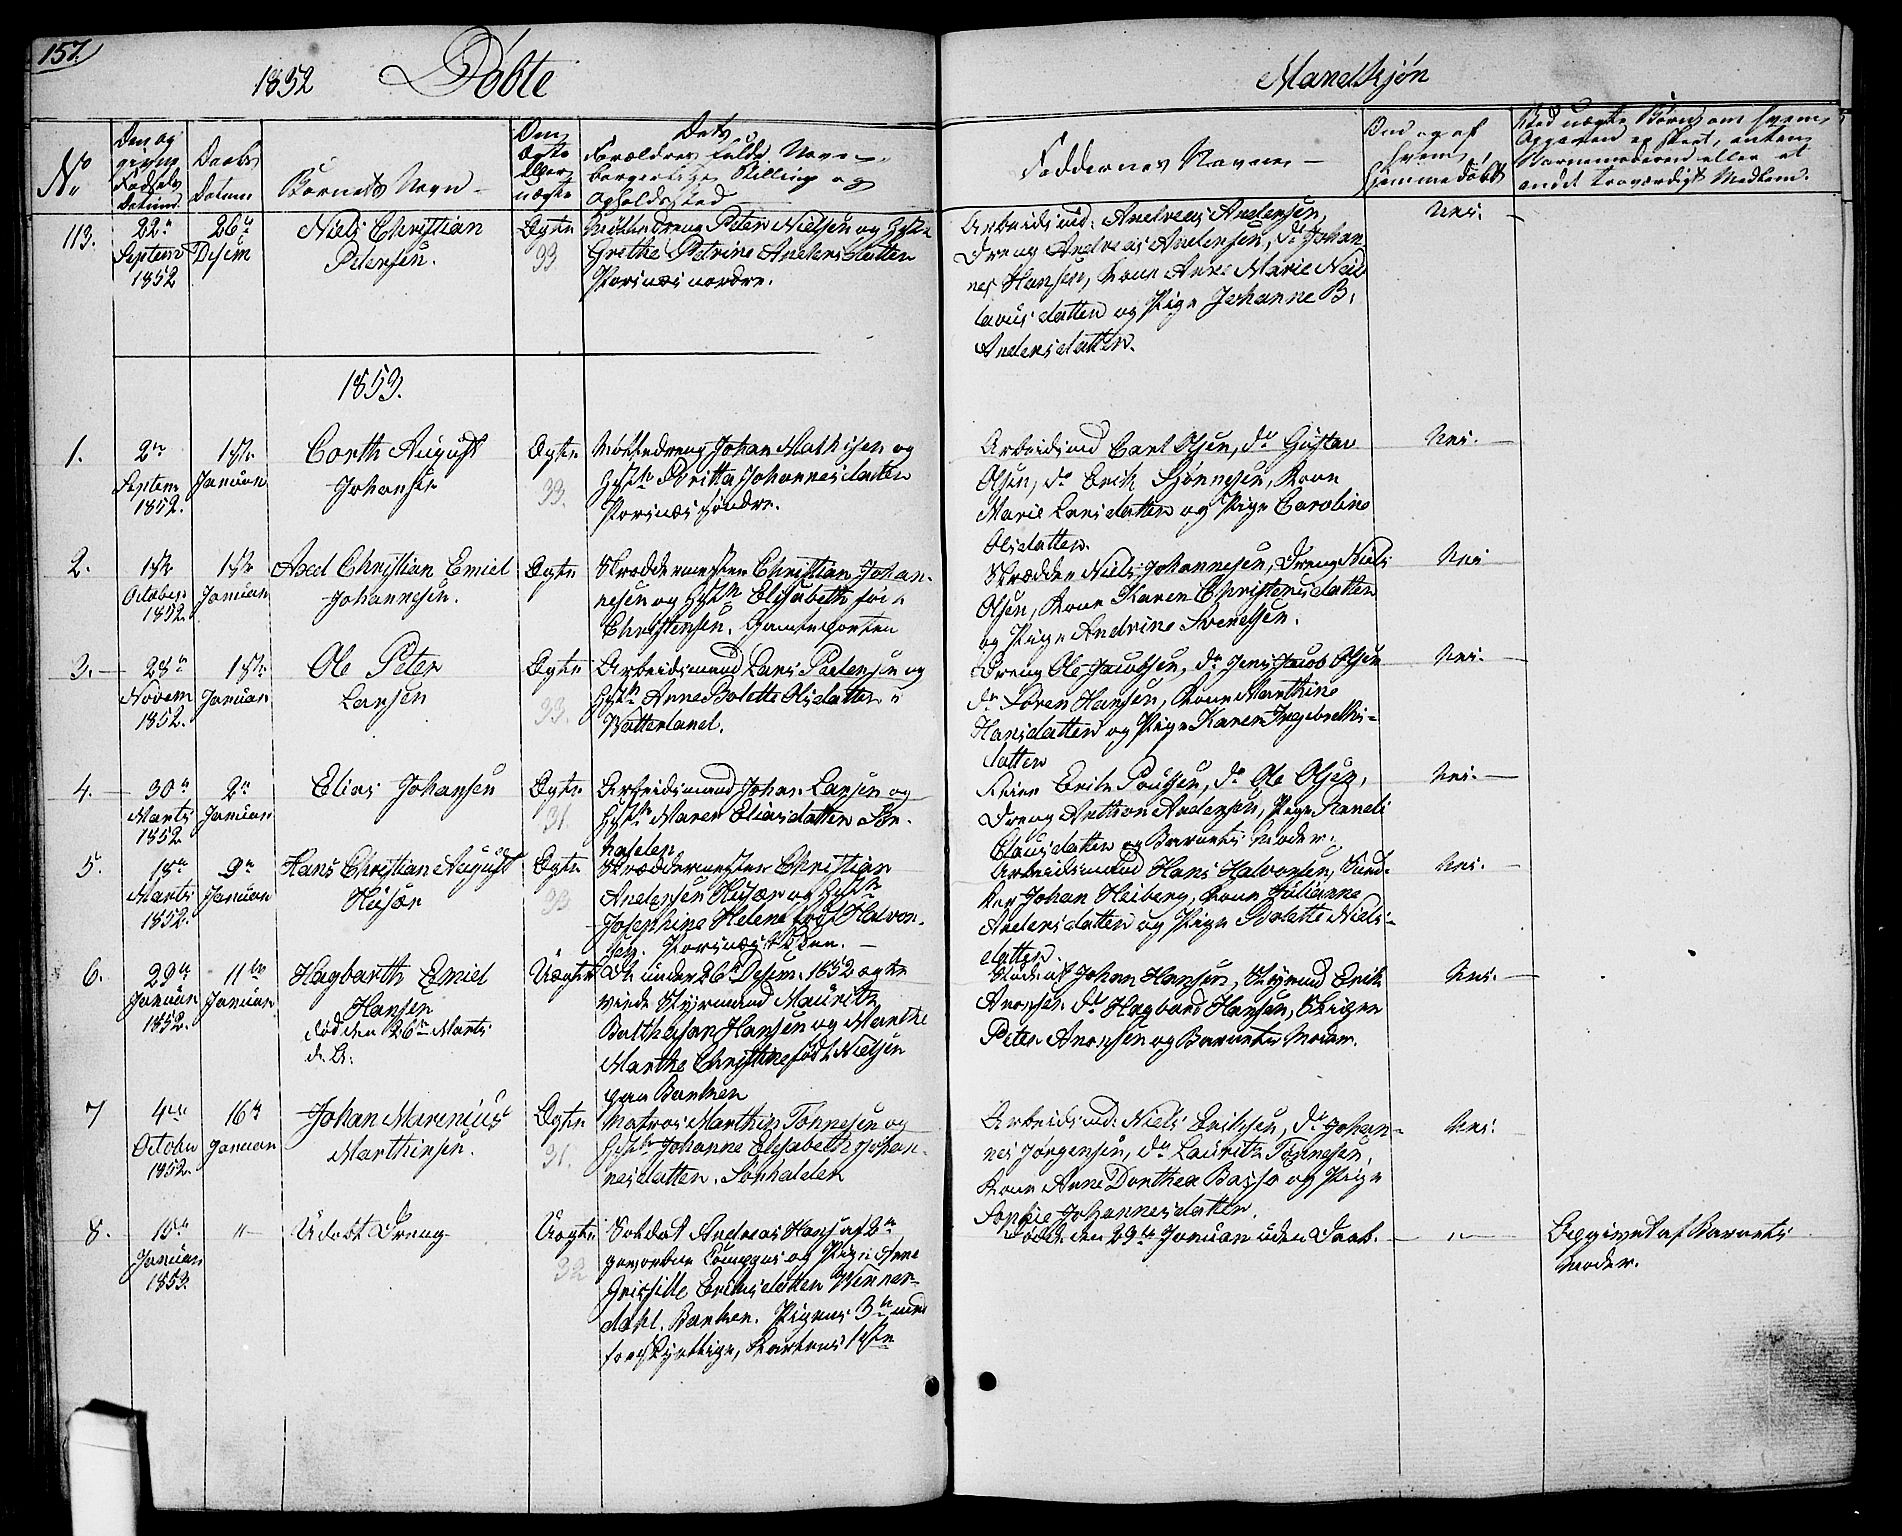 157.
1852 Döbte
Mandkjøn
No
Den og
givne
Fødsels
Datum
Daabs
Datum
Barnets Navn
Om
Ægte
eller
uægte
Dets
Forældres fulde Navn,
borgerlige Stilling og
Opholdssted
Faddernes Navne
Hjemmedøbt
Ved uægte Børn, om hvem
113.
22de
Septem
1852
26de
Desem
Niels Christian
Petersen.
Ægte
33
Peter Nielsen og Hstr
Grethe Petrine Andersdatten
Porsnæs nordre.
Arbeidsmd: Andreas Andersen,
Dreng Andreas Andersen, do Johan-
nes Hansen, Kone Anne Marie Nico
lausdatten og Pige Johanne B.
Andersdatten.
Nei.
1853.
1.
2den
Septem
1852.
1ste
Januar
Corth August
Johansen
Ægte
33.
Johan Mathisen og
Hstr Britta Johannesdatten
Porsnæs søndre.
Arbeidsmd Carl Olsen, do Gustav
Olsen, do Erik Bjønnesen, Kone
Marie Larsdatten og Pige Caroline
Olsdatten.
Nei.
2.
1ste
October
1852.
1ste
Januar
Axel Christian Emiel
Johannesen.
Ægte
Skræddermester Christian Johan-
nesen og Hstr Elisabeth født
Christensen.
Skrædder Niels Johannesen, Dreng Niels
Olsen, Kone Karen Christensdatten
og Pige Andrine Svendsen.
Nei
3.
28de
Novem
1852.
1ste
Januar
Ole Peter
Larsen
Ægte
33.
Arbeidsmand Lars Pedersen og
Hstr Anne Bolette Olsdatten i
Vatterland.
Dreng Ole Jacobsen, do Jens Jacob Olsen
do Søren Hansen, Kone Marthine
Hansdatten og Pige Karen Ingebrethi-
datten
Nei.
4.
30te
Marts
1852.
2den
Januar
Elias Johansen
Ægte
31.
Arbeidsmand Johan Larsen og
Hstr Maren Eliasdatten Sør-
halden.
Erik Poulsen, do Ole Olsen,
Dreng Anthon Andersen, Pige
Clausdatten og Barnets Moder.
Nei.
5.
18de
Marts
1852.
9de
Januar
Hans Christian August
Husær
Ægte
33
Skræddermester Christian
Andersen Husær og Hstr
Josephine Helene født Halvor-
sen. Porsnæs
Arbeidsmand Hans Halvorsen,
Johan Heiberg, Kone Julianne
Andersdatten og Pige Bolette Niels-
datten.
Nei.
6.
29de
Januar
1852.
11te
Januar
Hagbarth Emiel
Hansen
død den 26de Marts
d. A.
Uægte
De under 26de Desem. 1852 egte
viede Styrmand Mauritz
Balthasar Hansen og Marthe
Marthe Christine født Nielsen
paa Banken
Johan Hansen, Styrmd Erik
Aronsen do Hagbard Hansen, Skipper
Peter Aronsen og Barnets Moder.
Nei.
7
4de
October
1852.
16de
Januar
Johan Marenius
Marthinsen.
Ægte
31.
Matros Marthin Tønnesen og
Hstr Johanne Elisabeth Johan-
nesdatten. Sørhalden
Arbeidsmd: Niels Erilsen, do Johan-
nes Jørgensen, do Lauritz Tønnesen,
Kone Anne Dorthea Basso og Pige
Sophie Johannesdatten.
Nei.
8.
15de
Januar
1853.
"
Udøbt Dreng
Uægte
32
Soldat Andreas Hans af 2den
og Pige
Erilsdatten Winner-
dahl. Banken. Pigens 3de med
forskjellige, Karlens 1ste
Døde den 29de Januar uden Daab.
"
Opgivet af Barnets
Moder.